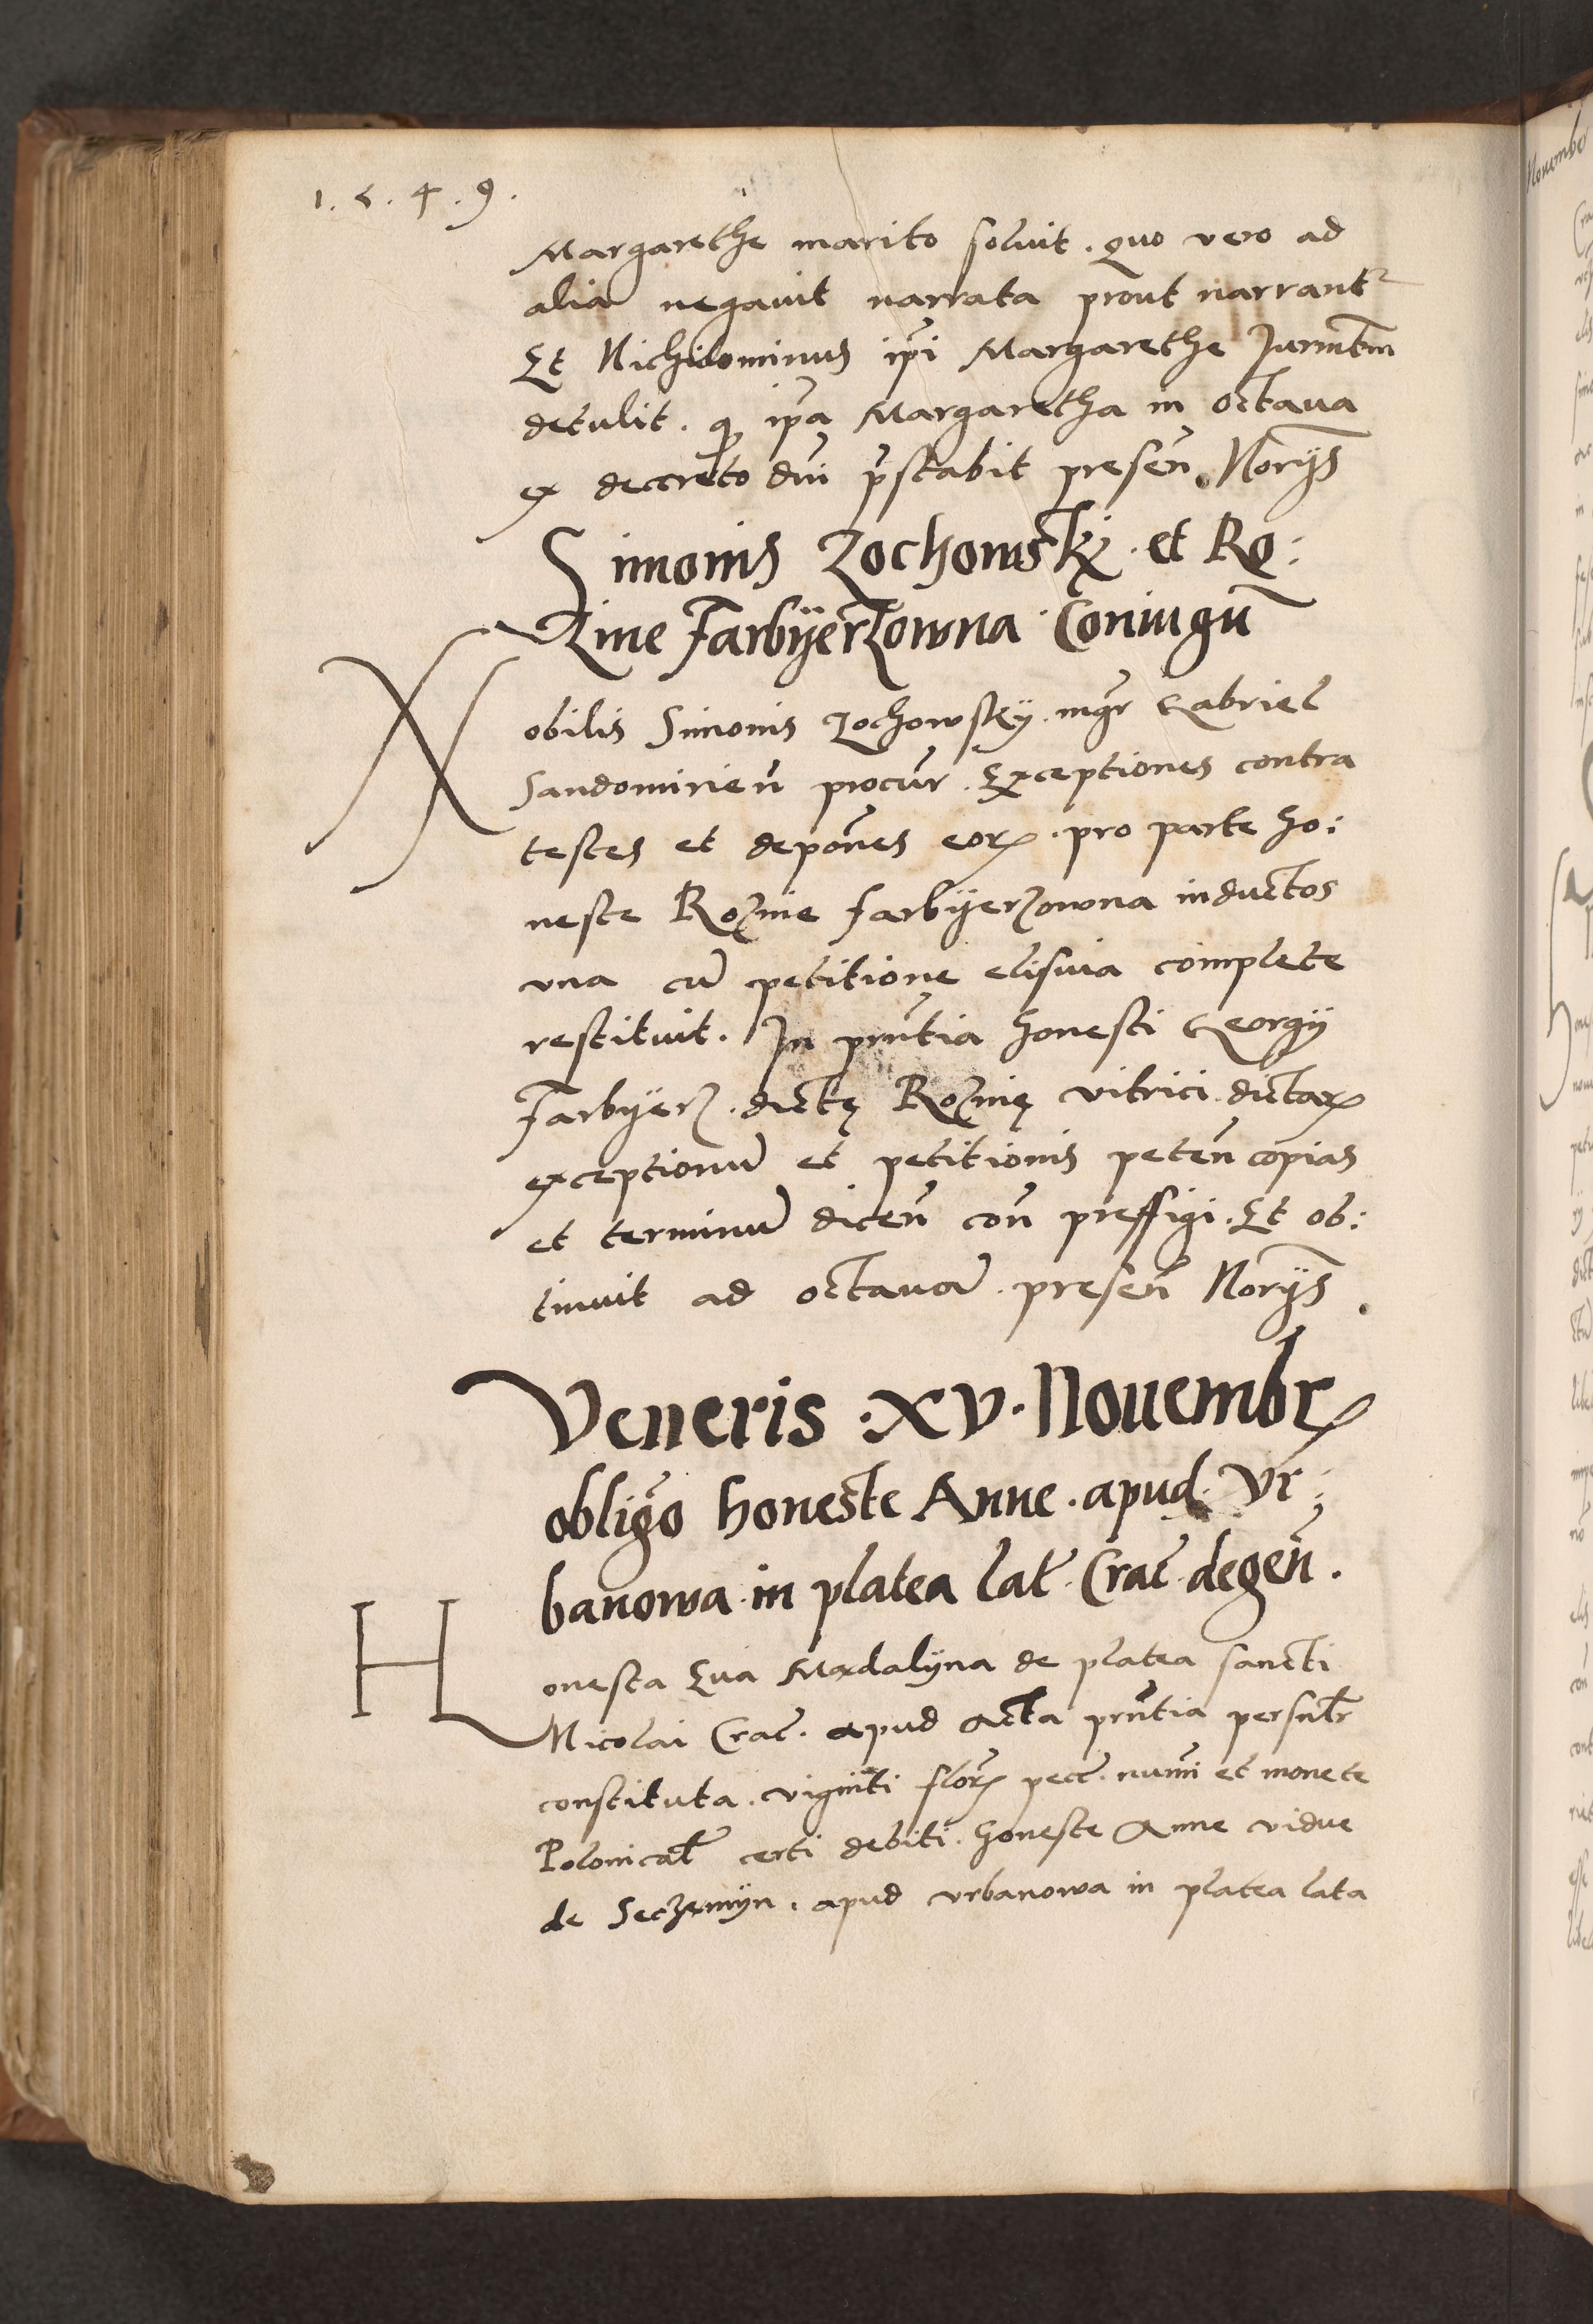 1.5.4.9.
Margarethe marito soluit. Quo vero ad
alia negauit narrata prout narrantr
Et Nichilominus ip̄i Margarethe Jurmtm̄
detulit. q ip̄a Margaretha in octaua
ex decreto dn̄i p̄stabit presen̄. Norȳs
Simonis Zochowskÿ. et Ro:
zine Farbÿerzowna Coniugū
Nobilis Simonis Zochowskÿ. mgr̄ Gabriel
Sandomirien̄ procur̄. Exceptiones contra
testes et depon̄es eorꝝ. pro parte ho:
neste Rozine farbÿerzowna inductos
vna cū petitione elisiuia complete
restituit. In prn̄tia honesti Georgÿ
Farbÿerz. dictę Rozinę vitrici. dictarꝝ
exceptionū et petitionis peten̄ copias
et terminū dicen̄ con̄ preffigi. Et ob:
tinuit ad octauā. presen̄ Norȳs.
Veneris .XV. Nouembrꝭ
obligo̅ honeste Anne. apud. Vr:
banowa. in platea lat̄. Crac̄. degen̄.
Honesta Eua Madalÿna de platea sancti
Nicolai Crac̄. apud acta prn̄tia personl̄r
constituta. viginti florꝝ pecc̄. num̄i et monete
Polonical̄ certi debiti. honeste Anne vidue
de Seczemÿn. apud vrbanowa in platea lata
Nouember